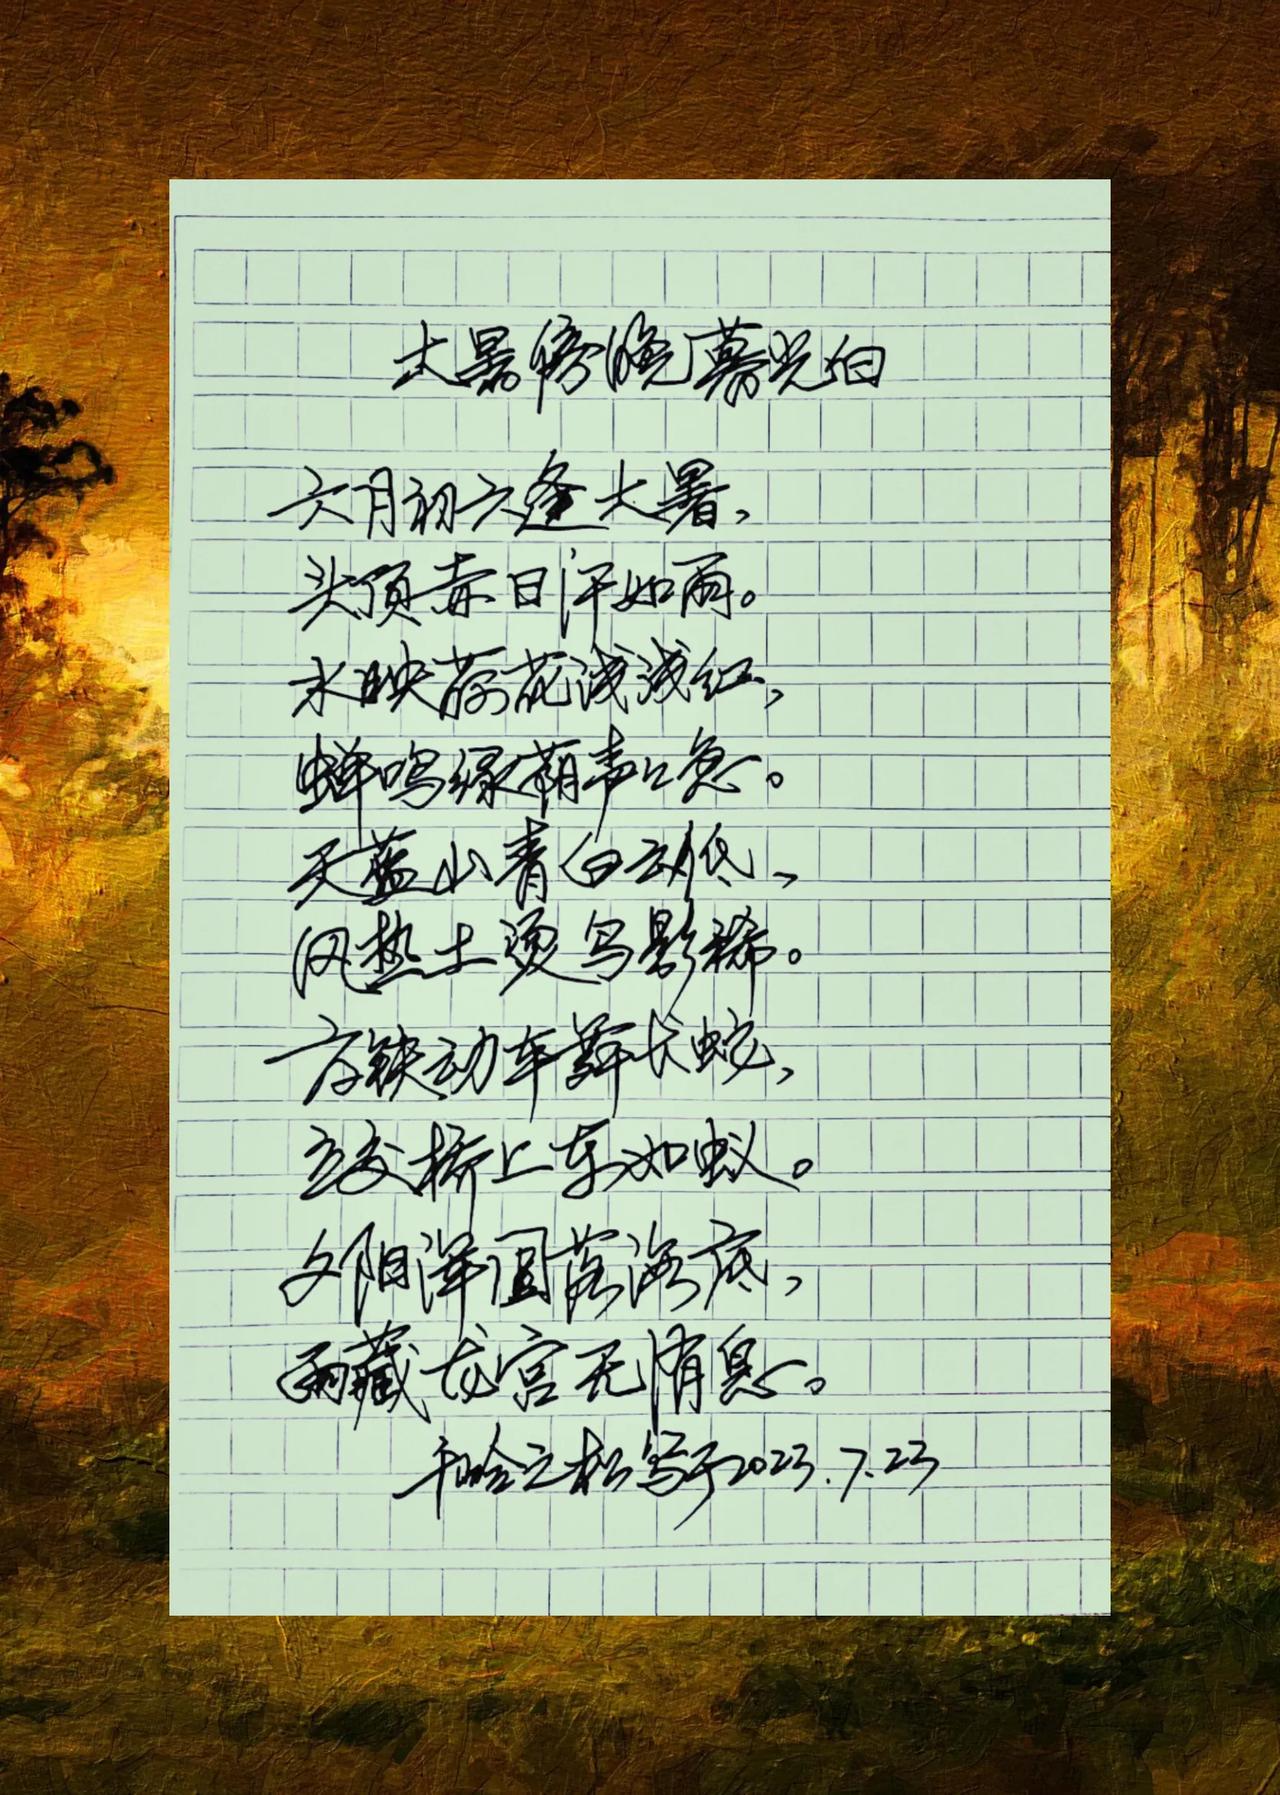 大暑傍晚暮光白
六月初六逢大暑，
头顶赤日汗如雨。
水映荷花浅浅红，
蝉鸣绿荫声声急。
天蓝山青白云低，
风热土烫鸟影稀。
高铁动车舞长蛇，
立交桥上车如蚁。
夕阳浑圆落海底，
雨藏龙宫无消息。
立松写于2023.7.23